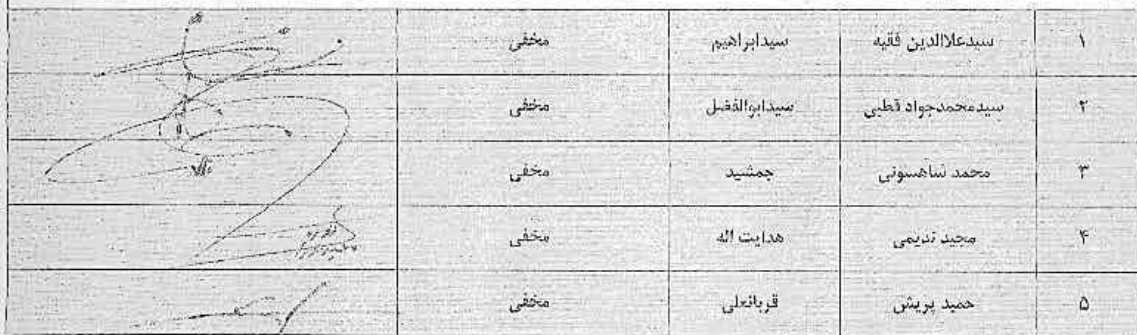 ۱ سیدعلاالدین فقیه سیدابراهیم مخفی
۲ سیدمحمدجواد قطبی سیدابوالفضل مخفی
۳ محمد شاهسونی جمشید مخفی
۴ مجید ندیمی هدایت اله مخفی
۵ حمید پریش قربانعلی مخفی